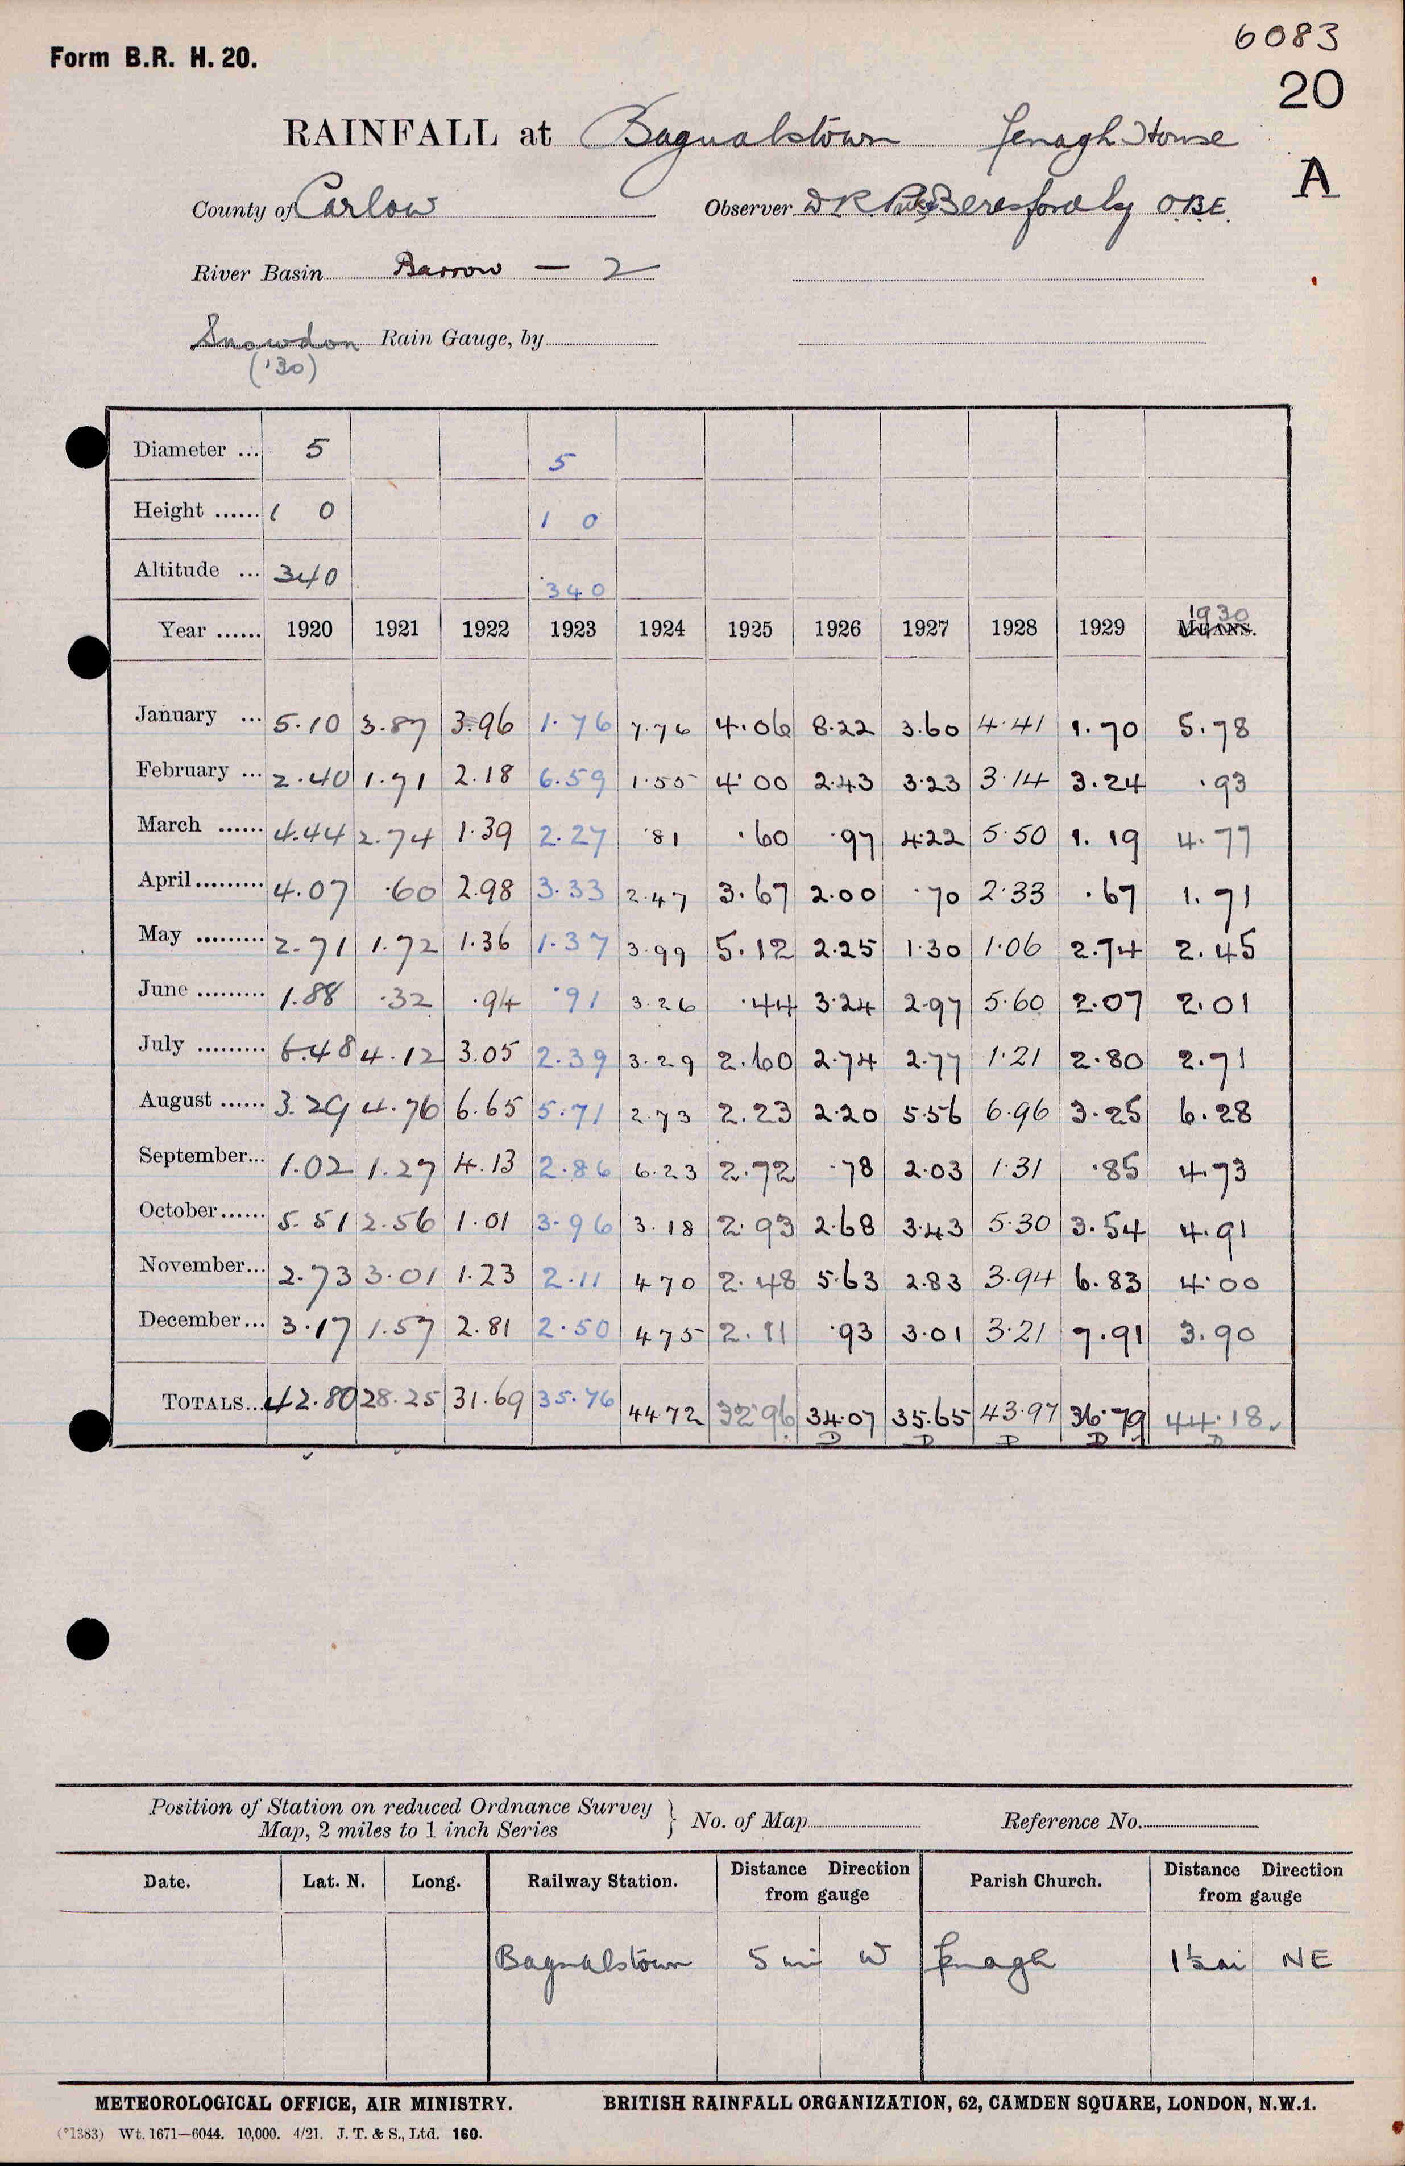 6083
Form B.R. H. 20.
20
RAINFALL at Bagnalstown Fenagh House
A
County of Carlow Observer D R Beresford Esq O.B.E.
River Basin Barrow — 2
Snowdon Rain Gauge, by
('30)
Diameter ... 5 5
Height ...... 1 0 1 0
Altitude ... 340 340
1930
Year ...... 1920 1921 1922 1923 1924 1925 1926 1927 1928 1929 MEANS.
January ... 5.10 3.87 3.96 1.76 7.76 4.06 8.22 3.60 4.41 1.70 5.78
February ... 2.40 1.71 2.18 6.59 1.55 4.00 2.43 3.23 3.14 3.24 .93
March ...... 4.44 2.74 1.39 2.27 .81 .60 .97 4.22 5.50 1.19 4.77
April......... 4.07 .60 2.98 3.33 2.47 3.67 2.00 .70 2.33 .67 1.71
May ......... 2.71 1.72 1.36 1.37 3.99 5.12 2.25 1.30 1.06 2.74 2.45
June ......... 1.88 .32 .94 .91 3.26 .44 3.24 2.97 5.60 2.07 2.01
July ......... 6.48 4.12 3.05 2.39 3.29 2.60 2.74 2.77 1.21 2.80 2.71
August ...... 3.29 4.76 6.65 5.71 2.73 2.23 2.20 5.56 6.96 3.25 6.28
September... 1.02 1.27 4.13 2.86 6.23 2.72 .78 2.03 1.31 .85 4.73
October...... 5.51 2.56 1.01 3.96 3.18 2.93 2.68 3.43 5.30 3.54 4.91
November... 2.73 3.01 1.23 2.11 4.70 2.48 5.63 2.83 3.94 6.83 4.00
December... 3.17 1.57 2.81 2.50 4.75 2.11 .93 3.01 3.21 7.91 3.90
TOTALS... 42.80 28.25 31.69 35.76 44.72 32.96 34.07 35.65 43.97 36.79 44.18
D D D D D
Position of Station on reduced Ordnance Survey
Map, 2 miles to 1 inch Series } No. of Map Reference No.
Date. Lat. N. Long. Railway Station. Distance Direction from gauge Parish Church. Distance Direction from gauge
Bagnalstown 5 mi W Fenagh 1½ mi NE
METEOROLOGICAL OFFICE, AIR MINISTRY. BRITISH RAINFALL ORGANIZATION, 62, CAMDEN SQUARE, LONDON, N.W.1.
(*1383) Wt. 1671—6044. 10,000. 4/21. J. T. & S., Ltd. 160.